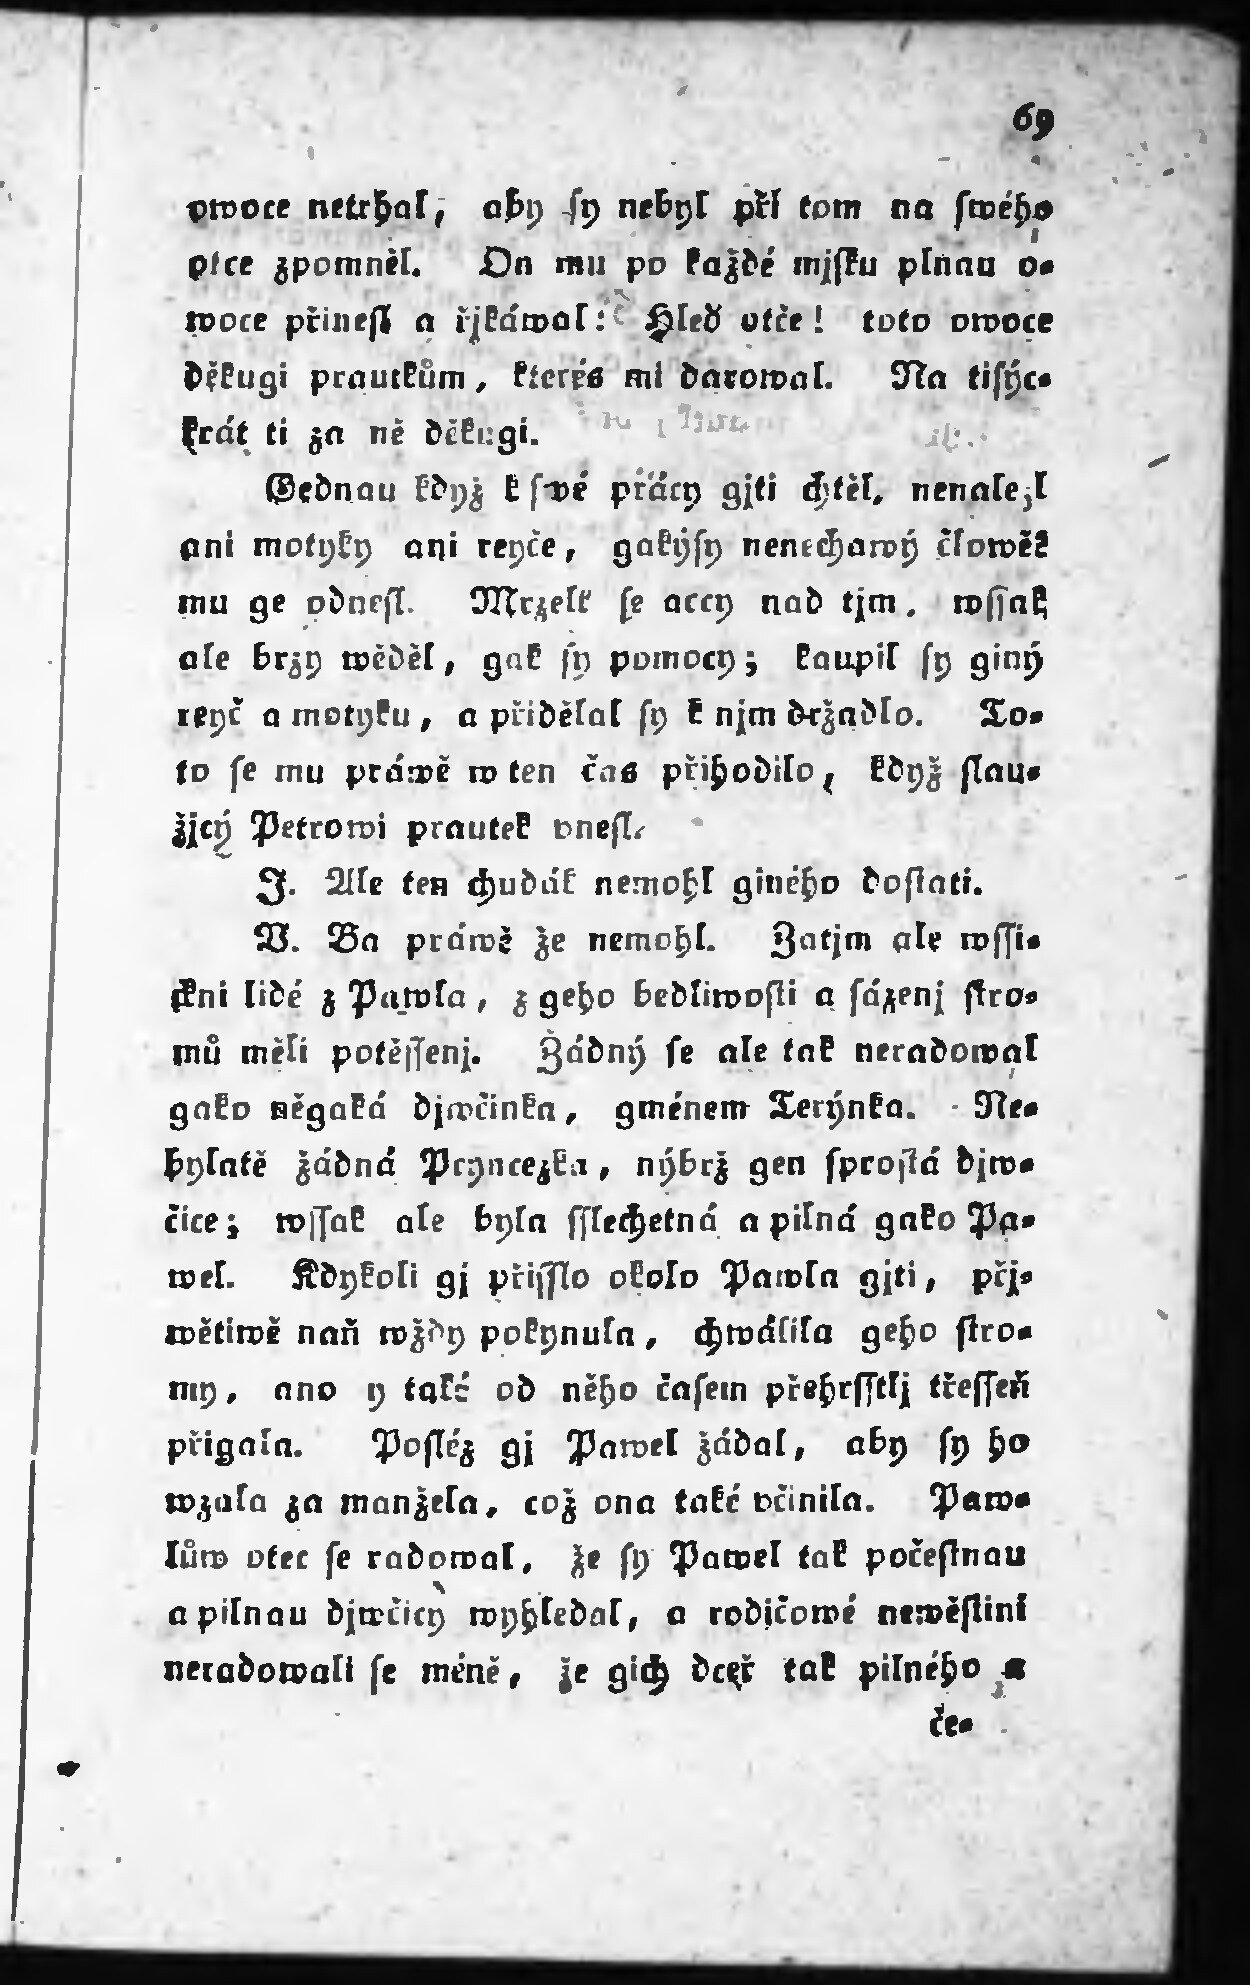 69
owoce netrhal, aby ſy nebyl při tom na ſwého
otce zpomněl. On mu po každé mjſku plnau o-
woce přineſl a řjkáwal: Hleď otče! toto owoce
děkugi prautkům, kterés mi darowal. Na tiſýc-
krát ti za ně děkugi.
Gednau když k ſwé prácy gjti chtěl, nenalezl
ani motyky ani reyče, gakýſy nenechawý člowěk
mu ge odneſl. Mrzelt ſe accy nad tjm, wſſak
ale brzy wěděl, gak ſy pomocy; kaupil ſy giný
reyč a motyku, a přidělal ſy k njm držadlo. To-
to ſe mu práwě w ten čas přihodilo, když ſlau-
žjcý Petrowi prautek vneſl.
J. Ale ten chudák nemohl giného doſtati.
V. Ba práwě že nemohl. Zatjm ale wſſi-
ckni lidé z Pawla, z geho bedliwoſti a ſázenj ſtro-
mů měli potěſſenj. Žádný ſe ale tak neradowal
gako něgaká djwčinka, gménem Terýnka. Ne-
bylatě žádná Pryncezka, nýbrž gen ſproſtá djw-
čice; wſſak ale byla ſſlechetná a pilná gako Pa-
wel. Kdykoli gj přiſſlo okolo Pawla gjti, přj-
wětiwě naň wždy pokynula, chwálila geho ſtro-
my, ano y také od něho čaſem přehrſſtlj třeſſeň
přigala. Poſléz gj Pawel žádal, aby ſy ho
wzala za manžela, což ona také včinila. Paw-
lům otec ſe radowal, že ſy Pawel tak počeſtnau
a pilnau djwčicy wyhledal, a rodičowé newěſtini
neradowali ſe méně, že gich dceř tak pilného a
če-